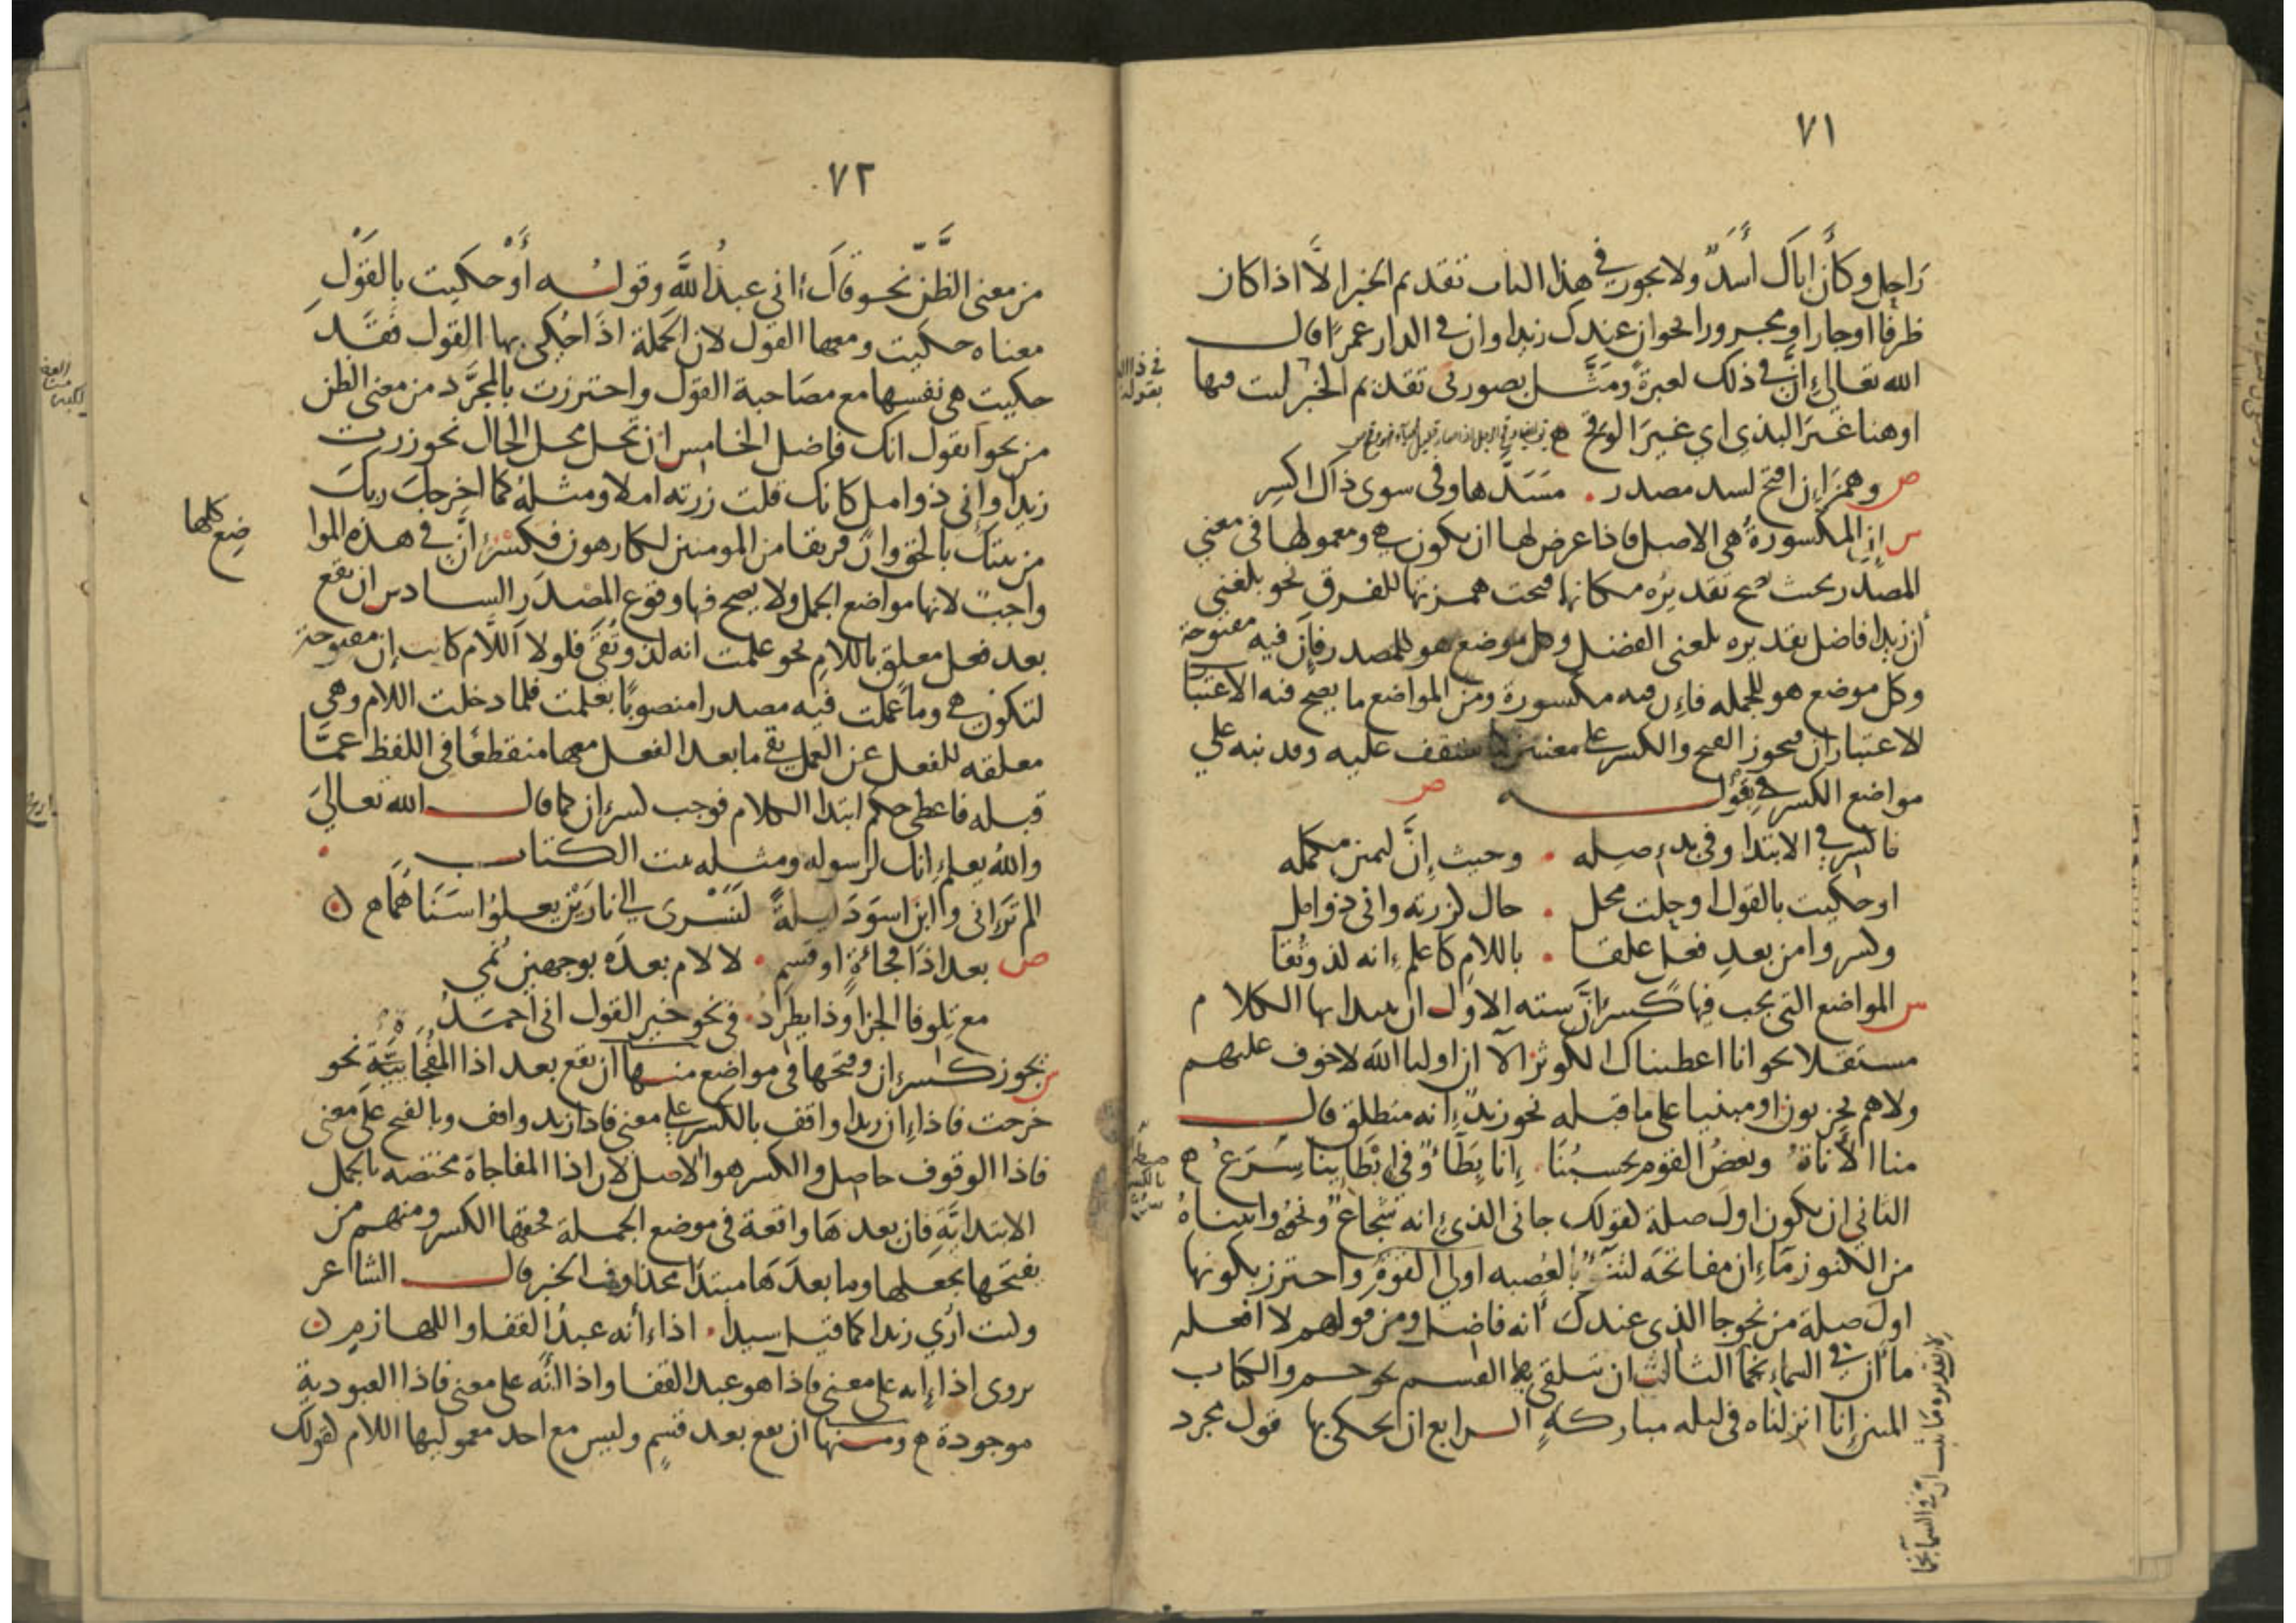 ٧١
رَاحِل وكأن اباك أسَدٌ ولا يجوز في هذا الباب تقديم الخبر الَّا اذا كان
ظرفا او جارا ومجرورا نحو ان عندك زيدا وان في الدار عمرًا قال
الله تعالى إنَّ في ذلك لعبرةً ومَثَّل بصورتي تقديم الخبر ليت فيها
اوهنا غَيرَ البذي اي غيرَ الوقح
ص وهمزَ إن افتح لسد مصدر . مَسَدَّها وفي سوى ذاك اكسِر
س إن المكسورةُ هي الاصل فاذا عرض لها ان يكون هي ومعمولها في معني
المصدر بحيث يصح تقديرُه مكانها فتحت همزتها للفرق نحو بلغني
أن زيدا فاضل تقديره بلغني الفضل وكل موضع هو للمصدر فإن فيه مفتوحة
وكل موضع هو للجمله فإن فيه مكسورة ومن المواضع ما يصح فيه الاعتبا
لاعتباران فيجوز الفتح والكسر على معنيين ستقف عليه وقد نبه على
مواضع الكسر في قوله ص
فاكسر في الابتدا وفي بدء صله . وحيث إنَّ ليمين مكمله
او حكيت بالقول او حلت محل . حال كزرته واني ذو امل
وكسروا من بعدِ فعل علقا . باللامِ كاعلم إنه لذو تُقا
س المواضع التي يجب فيها كسر انَّ سته الاول ان يبدا بها الكلام
مستقلا نحو انا اعطيناك الكوثر الآ ان اوليا الله لا خوف عليهم
ولا هم يحزنون او مبنيا على ما قبله نحو زيدٌ إنه منطلق قال
منا الأناةُ وبعضُ القوم يحسبُنَا . إنا بِطَاءٌ وفي إبطَاينا سِرَعُ ح
الثاني ان يكون اول صلة كقولك جاني الذي إنه شجاع ونحوُ واتيناهُ
من الكنوز مَا إن مفاتحَه لتنوءُ بالعُصبه اولي القوةِ واحترز بكونها
اول صلة من نحو جا الذي عندك أنه فاضل ومن قولهم لا افعله
ما أن في السماء نجمًا الثالث ان يتلقى بها القسم نحو حم والكتاب
المبين إنا انزلناه في ليله مباركةٍ الرابع ان يحكى بها قول مجرد
٧٢
من معنى الظَّنِّ نحو قَالَ إني عبدُ اللَّهِ وقولُه أوْ حكيت بِالقَوْلِ
معناه حكيت ومعها القول لان الجملة اذَا حُكي بها القول فقَد
حكيت هي نفسها مع مصَاحبة القول واحترزت بالمجرَّد من معنى الظن
من نحو اتقول انك فاضل الخامس ان تحل محل الحال نحو زرت
زيدا وإني ذو امل كانك قلت زرته املا ومثلُه كما اخرجك ربكَ
من بيتك بالحق وانّ فريقا من المومنين لكارهون فكسْر انَّ في هذه الموا
ضع كلها
واجبٌ لانها مواضع الجمل ولا يصح فيها وقوع المصدَر السادس ان يقع
بعد فعل معلق باللامِ نحو علمت انه لذو تُقًى فلولا اللَّام كانت إن مفتوحة
لتكون هي وما عملت فيه مصدرا منصوبًا بعلمت فلما دخلت اللام وهي
معلقه للفعل عن العمل بقي ما بعد الفعل معها منقطعًا في اللفظ عمَّا
قبله فاعطي حكم ابتدا الكلام فوجب كسر ان كما قال الله تعالى
والله يعلم إنك لرسوله ومثله بيت الكتاب
الم تَرَ إني وابن اسوَدَ ليلةً لَنَسْرى الى نارَيْن يعلوُا سَنَاهُمَا ح
ص بعد اذَا فُجاءَةٍ او قسَمٍ . لا لام بعدَه بوجهين نُمي
مع تِلو فا الجزا وذا يطَّرد . في نحو خير القول اني احمَدُ
ش يجوز كسر ان وفتحها في مواضع منها ان يقع بعد اذا الفُجَائِيَّةِ نحو
خرجت فاذا إن زيدا واقف بالكسر على معنى فاذا زيد واقف وبالفتح على معنى
فاذا الوقوف حاصل والكسر هو الاصل لان اذا المفاجاة مختصه بالجمل
الابتدائيَّةِ فان بعدهَا واقعة في موضع الجملة فحقها الكسر ومنهم من
يفتحها يجعلها وما بعدَهَا مبتدَا محذوف الخبر قال الشاعر
وكنت أرى زيدا كما قيل سيدا . اذا أنه عبدُ القفا واللهازمِ
يروى اذا إنه على معنى فاذا هو عبد القفا واذا أنَّه على معنى فاذا العبودية
موجودة ح ومنها ان يقع بعد قسَمٍ وليس مع احد معموليها اللام كقولك